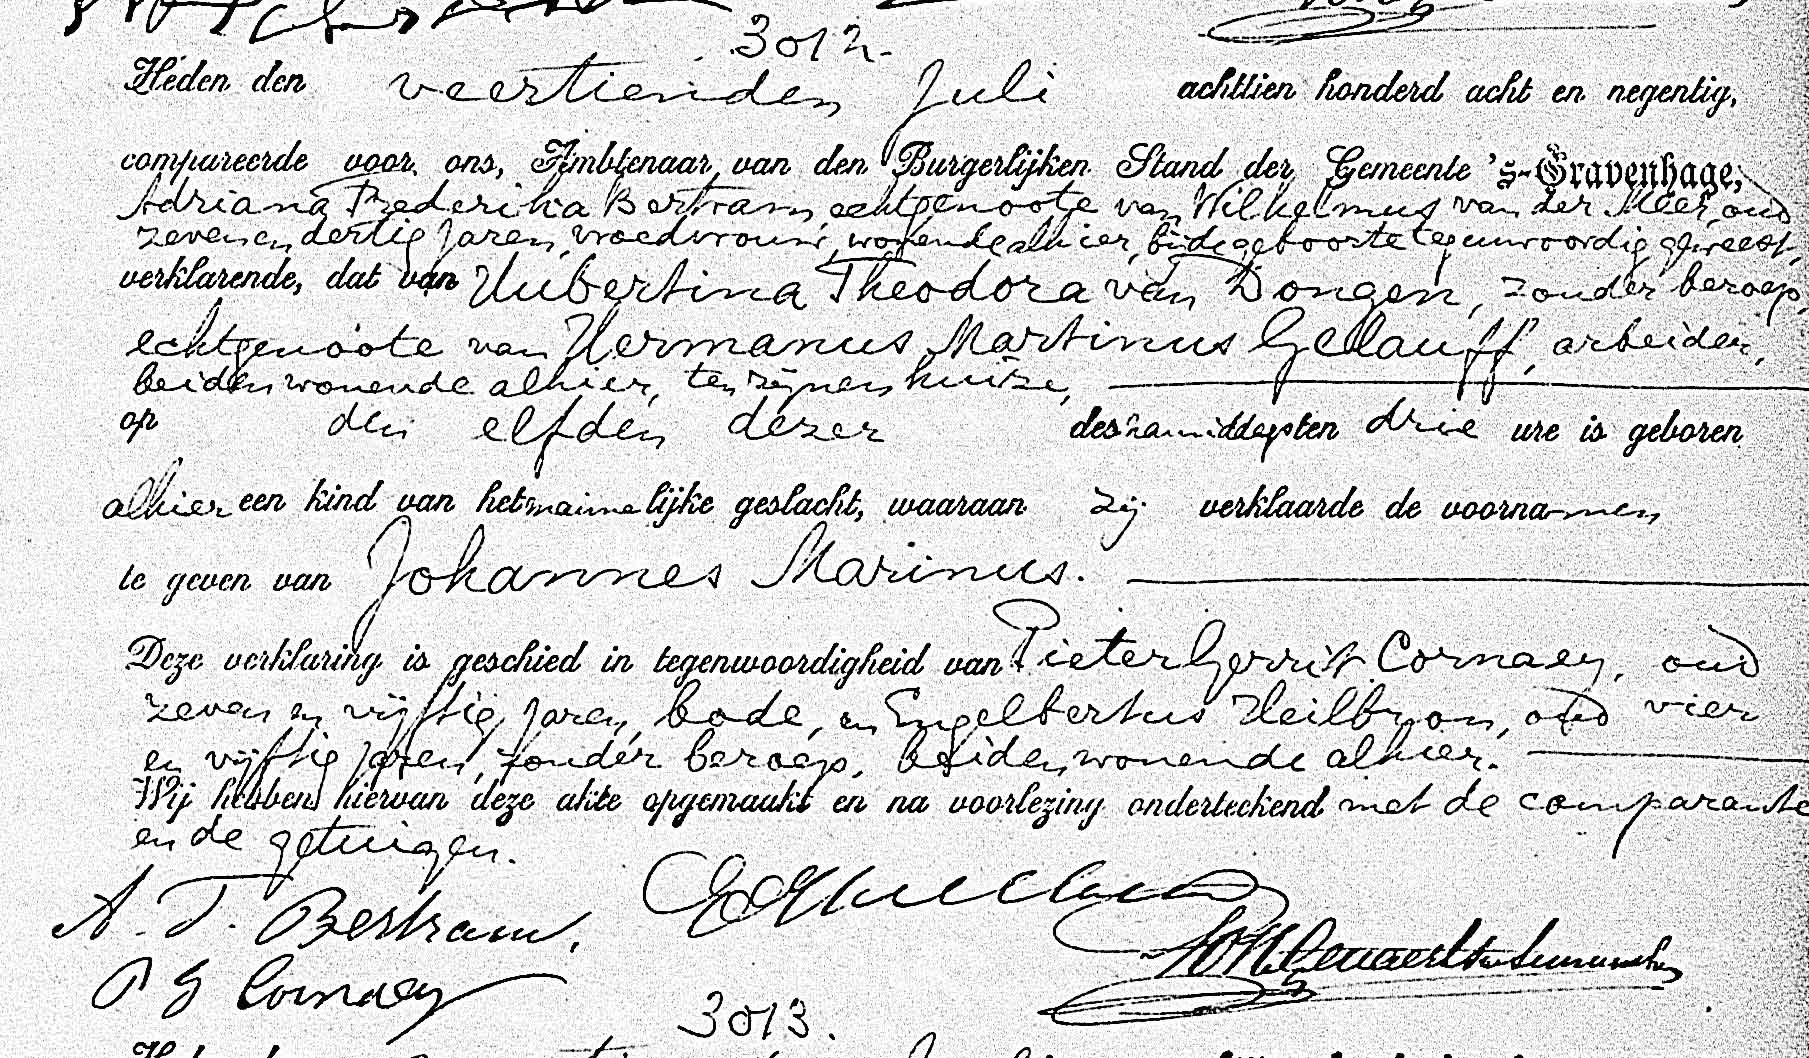 3012.
Heden den veertienden Juli achttien honderd acht en negentig,
compareerde voor ons, Ambtenaar van den Burgerlijken Stand der Gemeente 's-Gravenhage,
Adriana Frederika Bertram, echtgenoote van Wilhelmus van der Meer, oud
zeven en dertig jaren, vroedvrouw, wonende alhier, bij de geboorte tegenwoordig geweest,
verklarende, dat van Hubertina Theodora van Dongen, zonder beroep,
echtgenoote van Hermanus Martinus Gellauff, arbeider,
beiden wonende alhier, ten zijnen huize,
op den elfden dezer des namiddags ten drie ure is geboren
alhier een kind van het mannelijke geslacht, waaraan zij verklaarde de voornamen
te geven van Johannes Marinus.
Deze verklaring is geschied in tegenwoordigheid van Pieter Gerrit Cornaey, oud
zeven en vijftig jaren, bode, en Engelbertus Heilbron, oud vier
en vijftig jaren, zonder beroep, beiden wonende alhier.
Wij hebben hiervan deze akte opgemaakt en na voorlezing onderteekend met de comparante
en de getuigen.
A. F. Bertram.
P G Cornaey
3013.